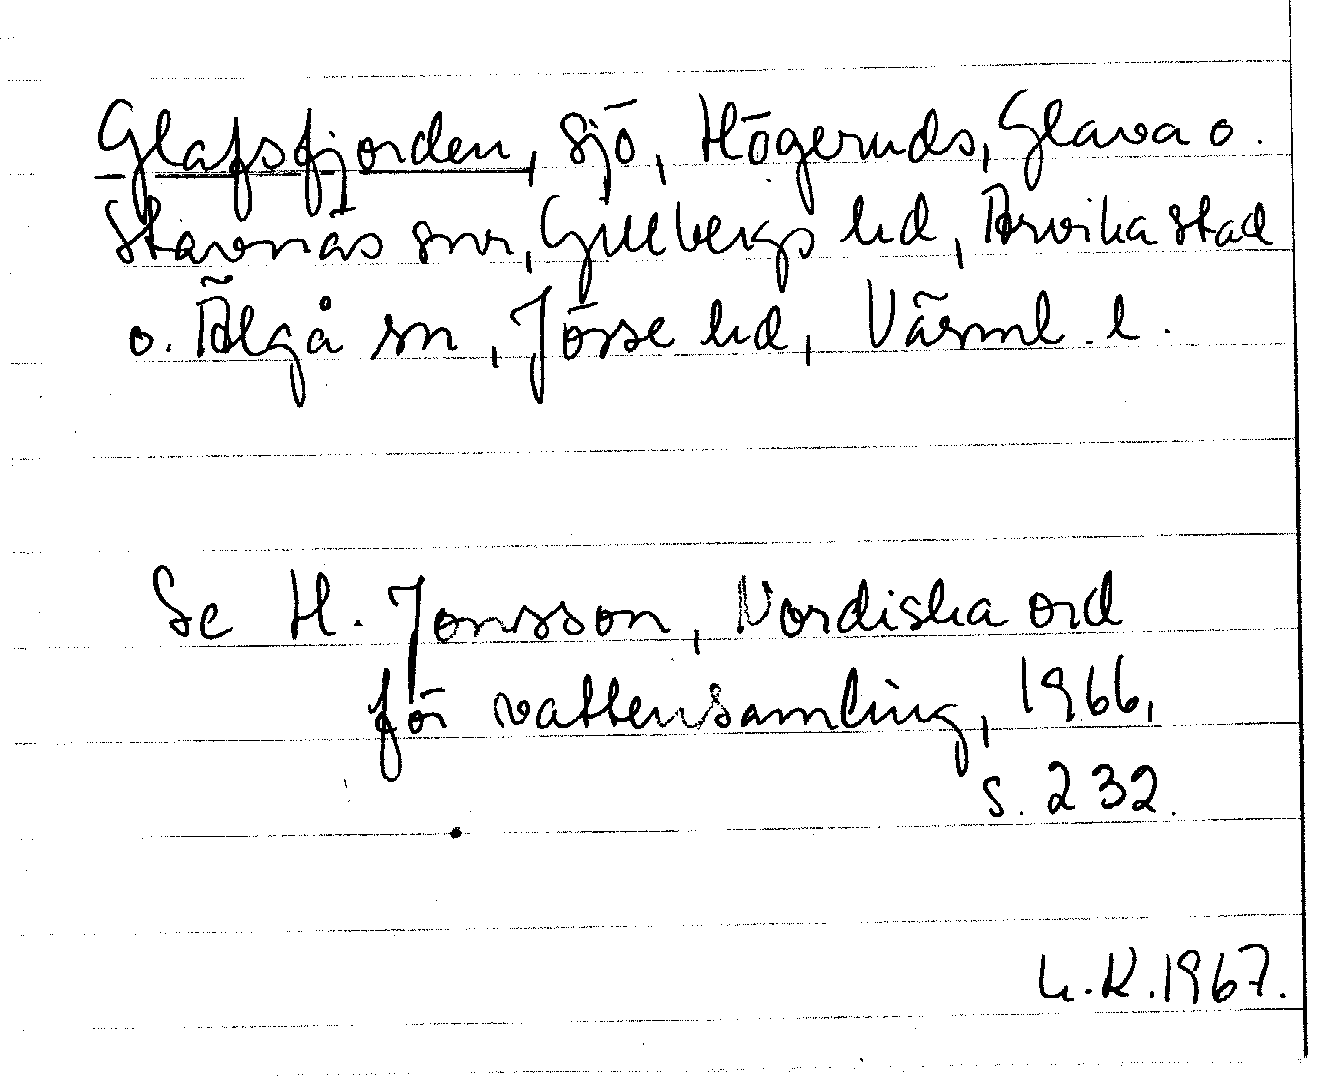 Glafsfjorden, sjö, Högeruds, Glava o.
Stavnäs snr, Gillbergs hd, Arvika stad
o. Älgå sn, Jösse hd, Värml. l.
Se H. Jonsson, Nordiska ord
för vattensamling, 1966,
s. 232.
L.K.1967.